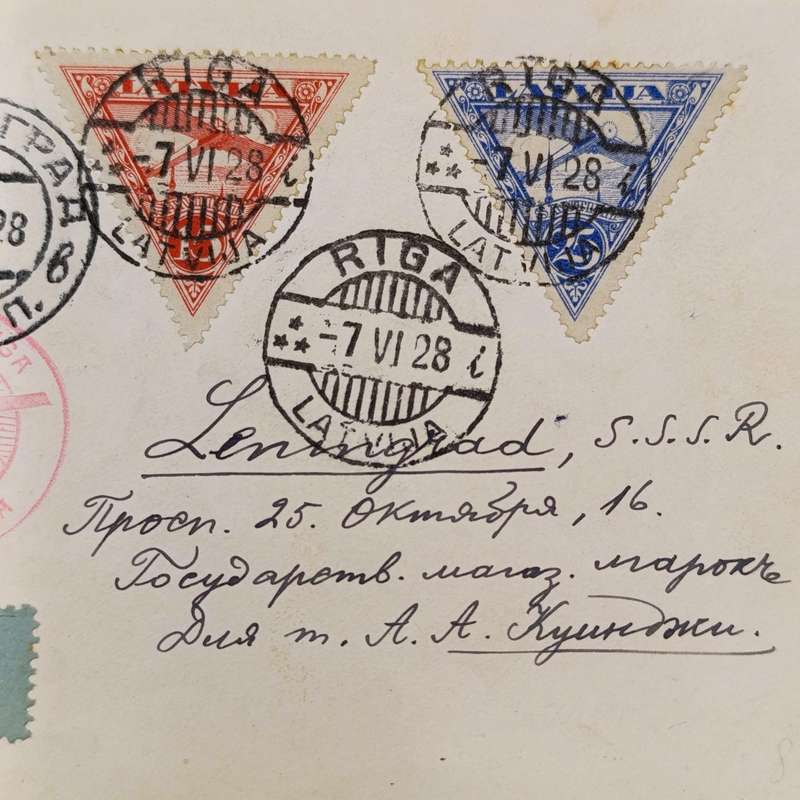 LATVIJA
15
RIGA
-7 VI 28 i
LATVIJA
LATVIJA
25
RIGA
-7 VI 28 i
LATVIJA
ГРАД
28
в
п.
RIGA
-7 VI 28 i
LATVIJA
Leningrad, S.S.S.R.
Просп. 25. Октября, 16.
Государств. магаз. марокъ
Для т. А. А. Куинджи.